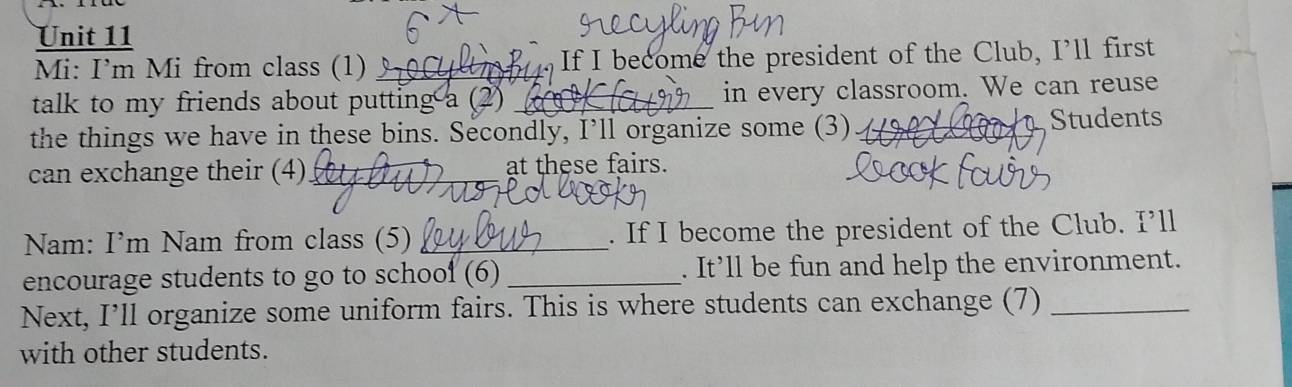 6A recyling Bin
Unit 11
Mi: I'm Mi from class (1) recyling Bin If I become the president of the Club, I'll first
talk to my friends about putting a (2) book fairs in every classroom. We can reuse
the things we have in these bins. Secondly, I'll organize some (3) used books Students
can exchange their (4) by bus at these fairs. book fairs
used books
Nam: I'm Nam from class (5) by bus. If I become the president of the Club. I'll
encourage students to go to school (6) ____________. It'll be fun and help the environment.
Next, I'll organize some uniform fairs. This is where students can exchange (7) __________
with other students.